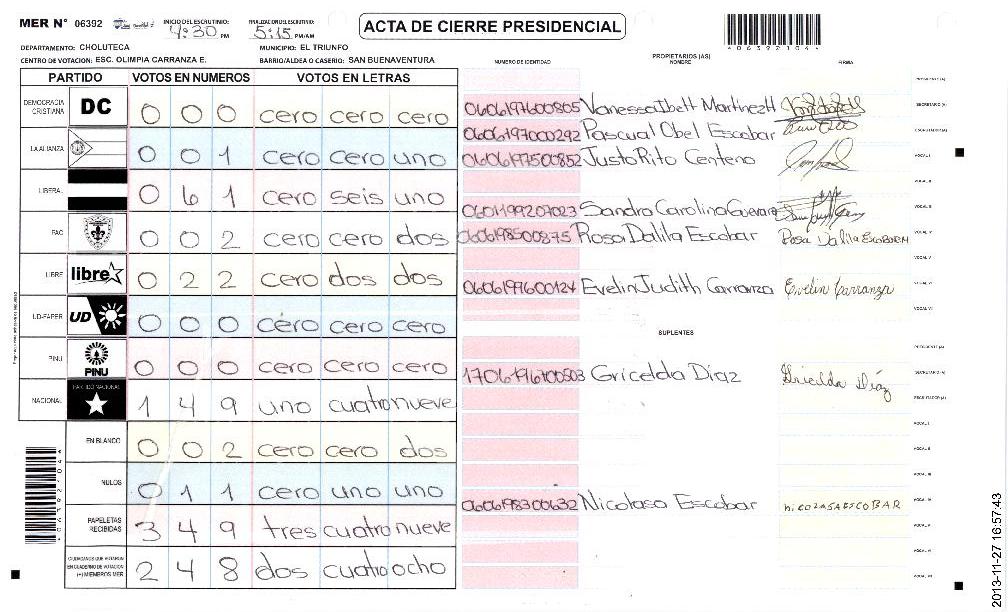 MER N° 06392 INICIO DEL ESCRUTINIO: 4:30 PM FINALIZACION ESCRUTINIO: 5:15 PM/AM ACTA DE CIERRE PRESIDENCIAL
4063921044
DEPARTAMENTO: CHOLUTECA MUNICIPIO: EL TRIUNFO
CENTRO DE VOTACION: ESC. OLIMPIA CARRANZA E. BARRIO/ALDEA O CASERIO: SAN BUENAVENTURA
NUMERO DE IDENTIDAD PROPIETARIOS (AS) NOMBRE FIRMA
PARTIDO VOTOS EN NUMEROS VOTOS EN LETRAS
DEMOCRACIA CRISTIANA DC 0 0 0 cero cero cero
LA ALIANZA 0 0 1 cero cero uno
LIBERAL 0 6 1 cero seis uno
PAC 0 0 2 cero cero dos
LIBRE libre 0 2 2 cero dos dos
UD-FAPER UD 0 0 0 cero cero cero
PINU PINU 0 0 0 cero cero cero
NACIONAL PARTIDO NACIONAL 1 4 9 uno cuatro nueve
EN BLANCO 0 0 2 cero cero dos
NULOS 0 1 1 cero uno uno
PAPELETAS RECIBIDAS 3 4 9 tres cuatro nueve
CIUDADANOS QUE VOTARON EN CUADERNO DE VOTACION (+) MIEMBROS MER 2 4 8 dos cuatro ocho
PRESIDENTE (A)
0606197600805 Vanessa Ibett Martinez H SECRETARIO (A)
0606197000292 Pascual Obel Escobar ESCRUTADOR (A)
0606197500852 Justo Rito Centeno VOCAL I
VOCAL II
0601199207023 Sandra Carolina Guevara VOCAL III
0606198500875 Rosa Dalila Escobar Rosa Dalila Escobar M VOCAL IV
VOCAL V
0606197600124 Evelin Judith Carranza Evelin Carranza VOCAL VI
VOCAL VII
SUPLENTES
PRESIDENTE (A)
1706197600503 Gricelda Diaz Gricelda Díaz SECRETARIO (A)
ESCRUTADOR (A)
VOCAL I
VOCAL II
VOCAL III
0606198300632 Nicolasa Escobar NICOLASA ESCOBAR VOCAL IV
VOCAL V
VOCAL VI
VOCAL VII
2013-11-27 16:57:43